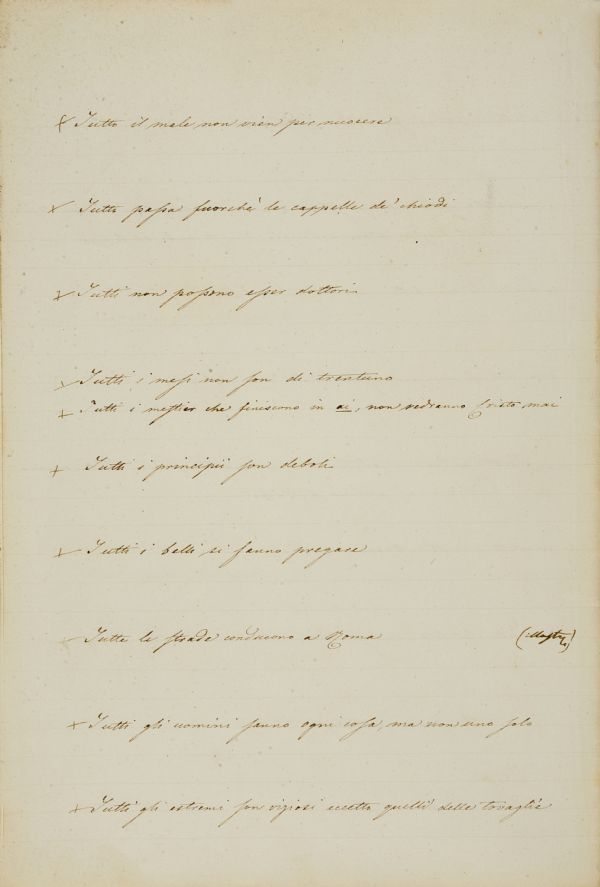 Tutto il male non vien per nuocere
Tutto passa fuorchè le cappelle de' chiodi
Tutti non possono esser dottori
Tutti i mesi non son di trentuno
Tutti i mestier che finiscono in ai, non vedranno Cristo mai
Tutti i principii son deboli
Tutti i belli si fanno pregare
Tutte le strade conducono a Roma
Tutti gli uomini fanno ogni cosa, ma non uno solo
Tutti gli estremi son viziosi eccetto quelli delle tovaglie